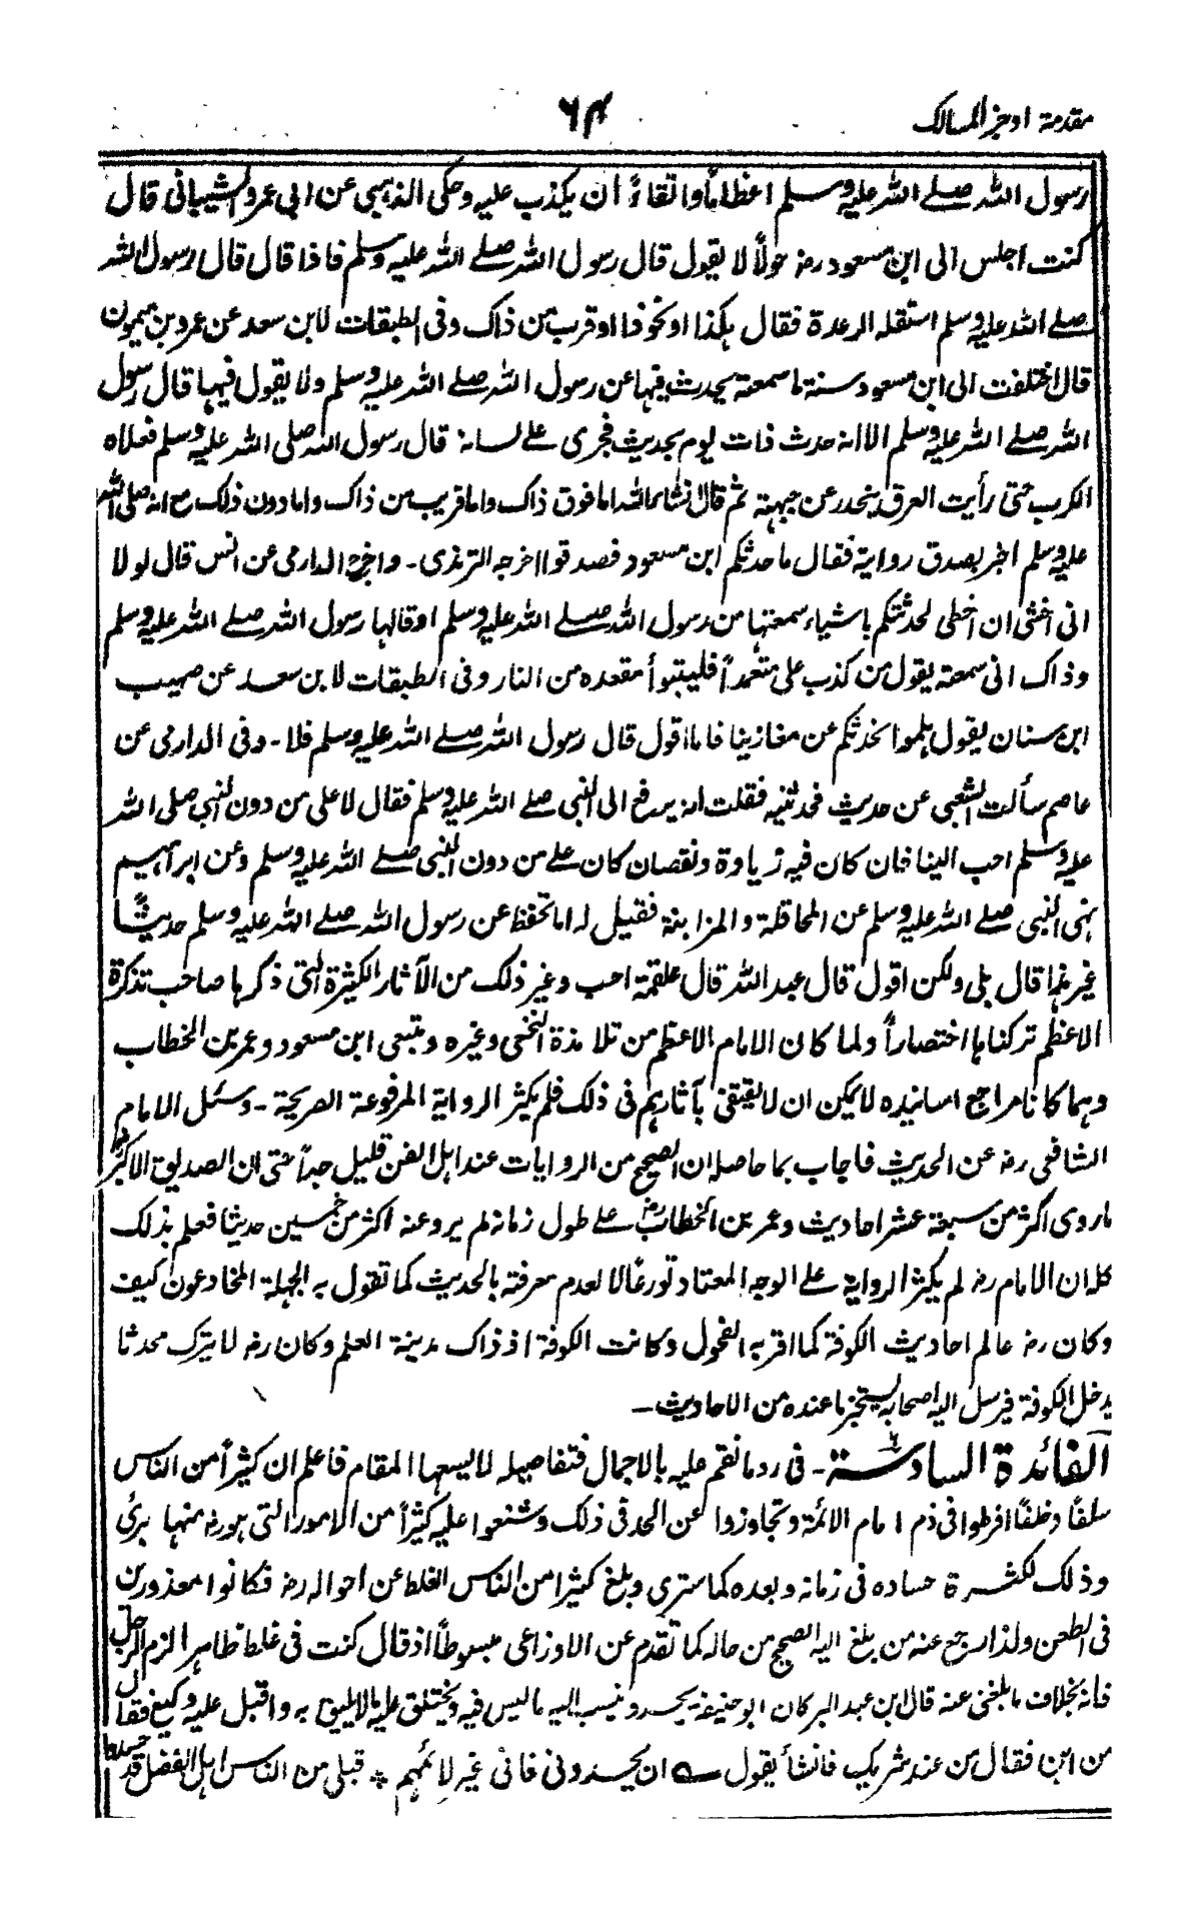 مقدمة اوجز المسالك
٦٤
رسول الله صلے الله عليه وسلم اعظاما واتقاءً ان يكذب عليه وحكى الذهبي عن ابى عمرو الشيبانى قال
كنت اجلس الى ابن مسعود رضہ حولاً لا يقول قال رسول الله صلے الله عليه وسلم فاذا قال قال رسول الله
صلے الله عليه وسلم استقلته الرعدة فقال هكذا او نحو ذا او قريب من ذاك وفى الطبقات لابن سعد عن عمرو بن ميمون
قال اختلفت الى ابن مسعود سنة ما سمعته يحدث فيها عن رسول الله صلے الله عليه وسلم ولا يقول فيها قال رسول
الله صلے الله عليه وسلم الا انه حدث ذات يوم بحديث فجرى على لسانه قال رسول الله صلى الله عليه وسلم فعلاه
الكرب حتى رأيت العرق ينحدر عن جبهته ثم قال انشاء الله اما فوق ذاك واما قريب من ذاك واما دون ذلك مع انه صلى الله
عليه وسلم اخبر بصدق رواية فقال ما حدثكم ابن مسعود فصدقوا اخرجه الترمذى ۔ واخرج الدارمى عن انس قال لولا
انى اخشى ان اخطى لحدثتكم باشياء سمعتها من رسول الله صلے الله عليه وسلم او قالها رسول الله صلے الله عليه وسلم
وذاك انى سمعته يقول من كذب على متعمداً فليتبوأ مقعده من النار وفى الطبقات لابن سعد عن صهيب
ابن سنان يقول هلموا نحدثكم عن مغازينا فاما اقول قال رسول الله صلے الله عليه وسلم فلا ۔ وفى الدارمى عن
عاصم سألت الشعبى عن حديث فحدثنيه فقلت انه يرفع الى النبى صلے الله عليه وسلم فقال لا على من دون النبى صلى الله
عليه وسلم احب الينا فان كان فيه زيادة ونقصان كان على من دون النبى صلے الله عليه وسلم وعن ابراهيم
نهى النبى صلے الله عليه وسلم عن المحاقلة والمزابنة فقيل له اما تحفظ عن رسول الله صلے الله عليه وسلم حديثاً
غير هذا قال بلى ولكن اقول قال عبد الله قال علقمة احب وغير ذلك من الآثار الكثيرة التى ذكرها صاحب تذكرة
الاعظم تركناها اختصاراً ولما كان الامام الاعظم من تلامذة النخعى وغيره ومتبعى ابن مسعود وعمر بن الخطاب
وهما كانا مراجع اسانيده لا يمكن ان لا يقتفى بآثارهم فى ذلك فلم يكثر الرواية المرفوعة الصريحة ۔ وسئل الامام
الشافعى رضہ عن الحديث فاجاب بما حاصله ان الصحيح من الروايات عند اهل الفن قليل جداً حتى ان الصديق الاكبر رضہ
ما روى اكثر من سبعة عشر احاديث وعمر بن الخطاب رضہ على طول زمانه لم يرو عنه اكثر من خمسين حديثا فعلم بذلك
كله ان الامام رضہ لم يكثر الرواية على الوجه المعتاد تورعاً لا لعدم معرفته بالحديث كما تقول به الجهلة المخادعون كيف
وكان رضہ عالم احاديث الكوفة كما اقر به الفحول وكانت الكوفة اذ ذاك مدينة العلم وكان رضہ لا يترك محدثا
يدخل الكوفة فيرسل اليه اصحابه ليستخبر ما عنده من الاحاديث ۔
الفائدة السادسة ۔ فى رد ما نقم عليه بالاجمال فتفاصيله لا يسعها المقام فاعلم ان كثيراً من الناس
سلفاً وخلفاً افرطوا فى ذم امام الائمة وتجاوزوا عن الحد فى ذلك وشنعوا عليه كثيراً من الامور التى هو رضہ منها برئ
وذلك لكثرة حساده فى زمانه وبعده كما سترى وبلغ كثيرا من الناس الغلط عن احواله رضہ فكانوا معذورين
فى الطعن ولذا رجع عنه من بلغ اليه الصحيح من حاله كما تقدم عن الاوزاعى مبسوطاً اذ قال كنت فى غلط ظاهر الزم الرجل
فانه بخلاف ما بلغنى عنه قال ابن عبد البر كان ابو حنيفة يحسد وينسب اليه ما ليس فيه ويختلق عليه ما لا يليق به واقبل عليه وكيع فقال
من اين فقال من عند شريك فانشأ يقول ؎ ان يحسدونى فانى غير لائمهم ٭ قبلى من الناس اهل الفضل قد حسدوا